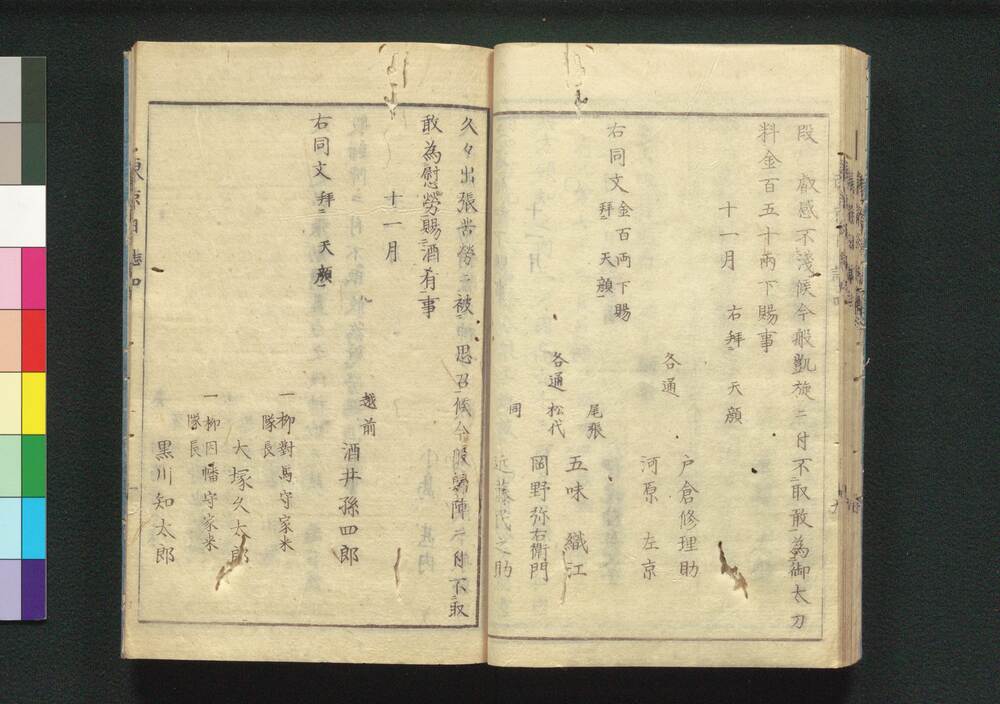 段　叡感不淺候今般凱旋ニ付不取敢為御太刀
料金百五十兩下賜事
十一月　右拜　天顔
各通
戸倉修理助
河原　左京
右同文
金百両下賜
拜　天顔
尾張
五味　織江
各通
松代
岡野弥右衛門
同
近藤民之助
久々出張苦勞ニ被　思召候今般歸陣ニ付不取
敢為慰勞賜酒肴事
十一月
右同文　拜　天顔
越前
酒井孫四郎
一柳對馬守家来
隊長
大塚久太郎
一柳因幡守家来
隊長
黒川知太郎